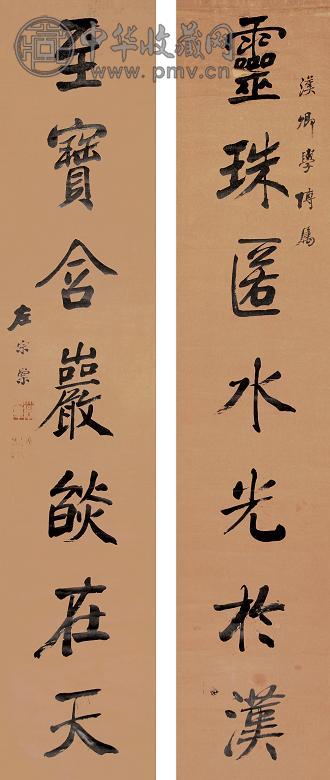 中华收藏网
www.pmv.cn
漢卿學博屬
靈珠匿水光於漢
至寶含巖燄在天
左宗棠